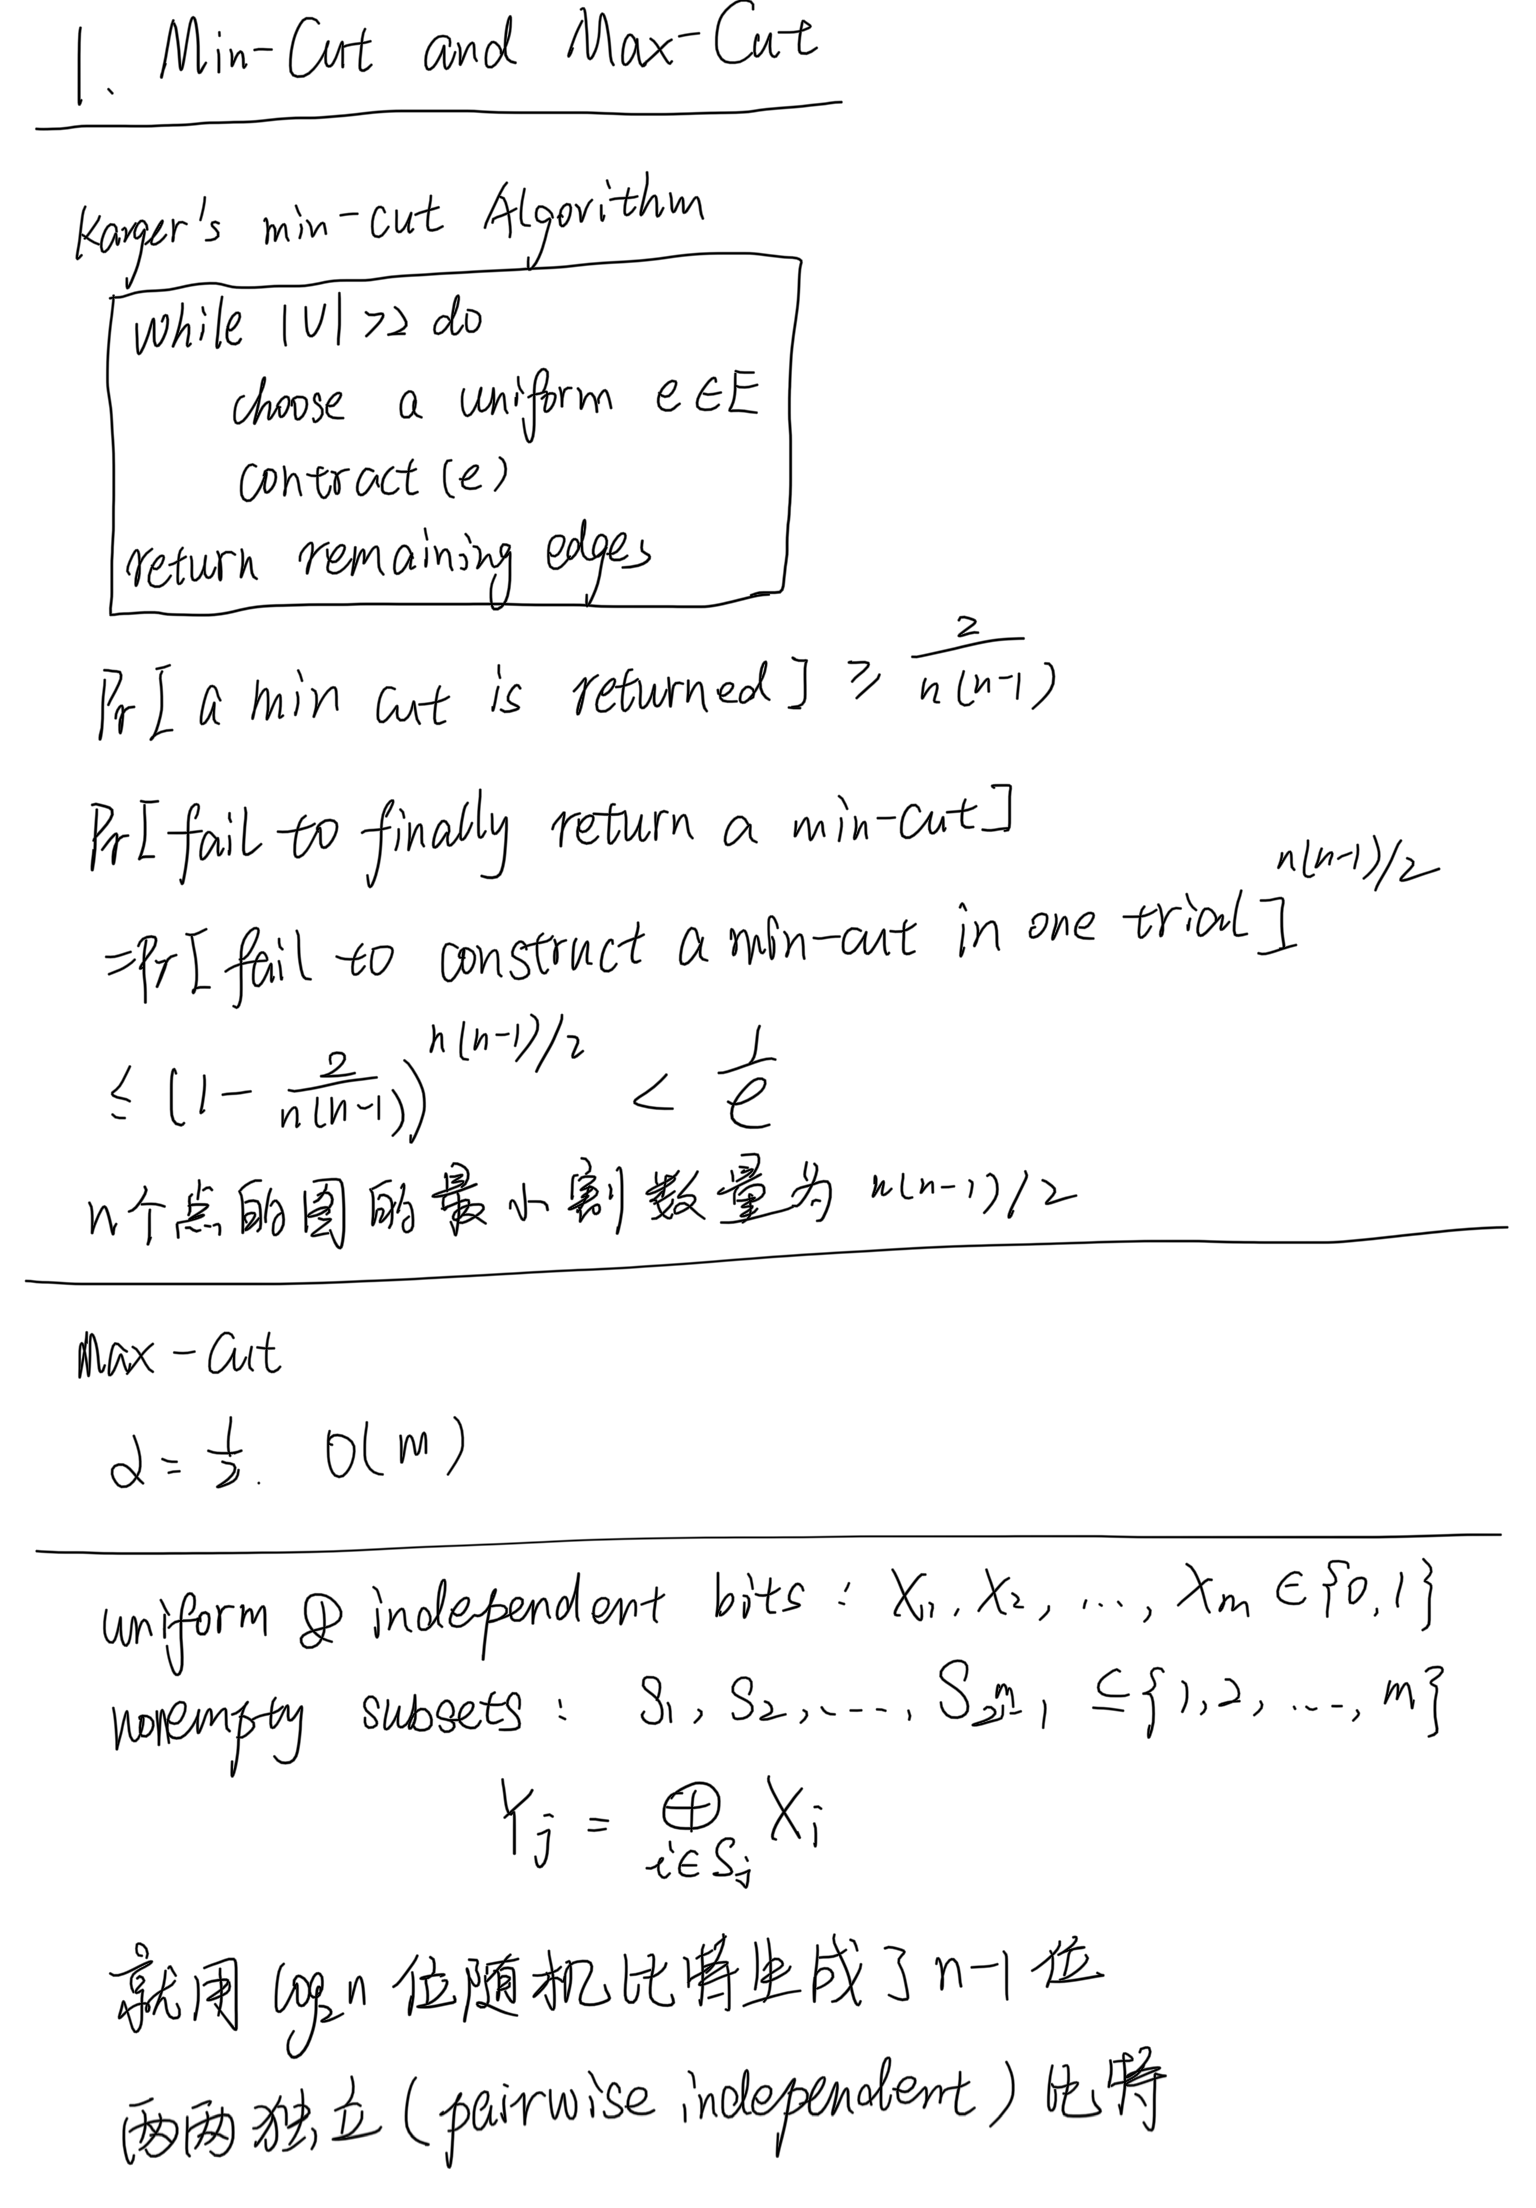 1. Min-Cut and Max-Cut
Karger's min-cut Algorithm
while |V|>2 do
choose a uniform e∈E
contract(e)
return remaining edges
Pr[a min cut is returned] ≥ 2/n(n-1)
Pr[fail to finally return a min-cut]
=Pr[fail to construct a min-cut in one trial]^{n(n-1)/2}
≤ (1 - 2/n(n-1))^{n(n-1)/2} < 1/e
n个点的图的最小割数量为 n(n-1)/2
Max-Cut
α=1/2. O(m)
uniform & independent bits: X₁, X₂, ..., Xₘ ∈{0,1}
nonempty subsets: S₁, S₂, ..., S_{2^m-1} ⊆{1,2,...,m}
Y_j = ⊕_{i∈S_j} X_i
就用 log₂n 位随机比特生成了n-1位
两两独立(pairwise independent)比特